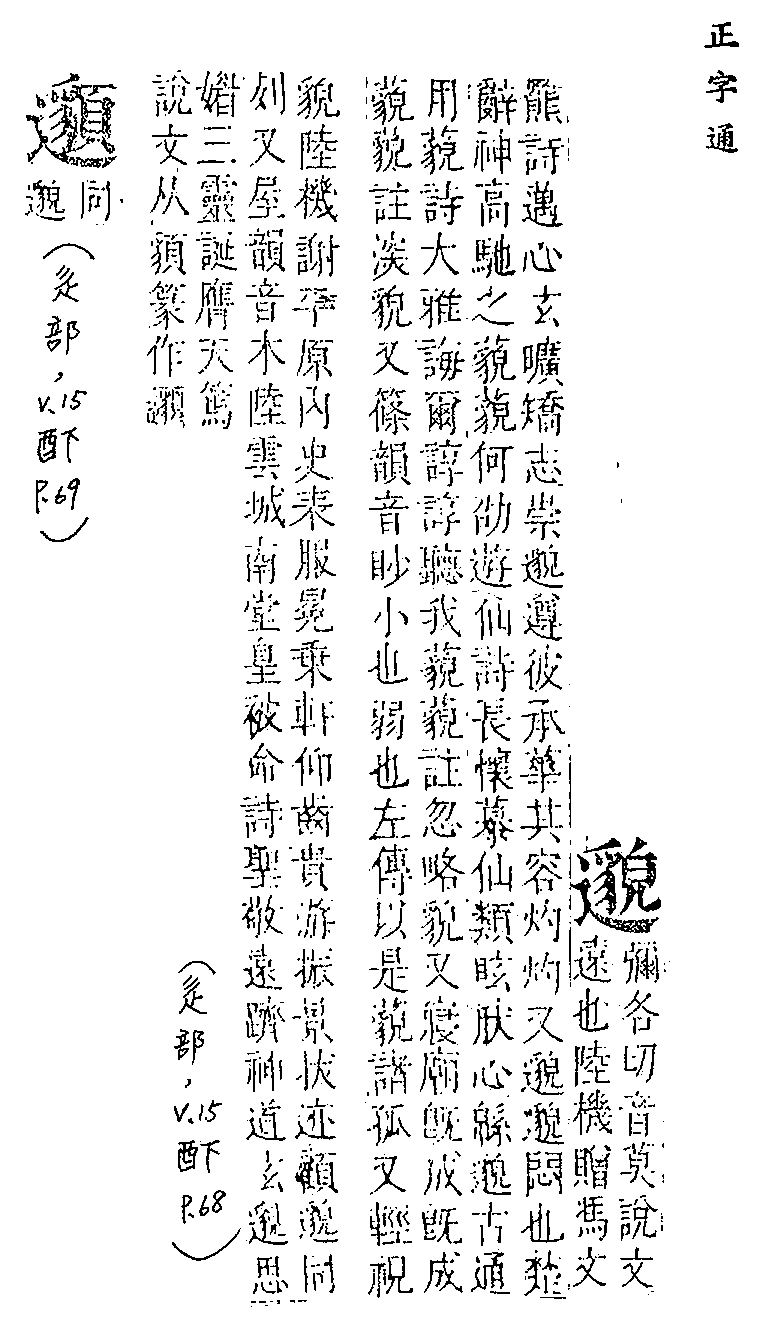 正字通
邈
彌各切音莫說文
遠也陸機贈馮文
羆詩邁心玄曠矯志崇邈遵彼承華其容灼灼又邈邈悶也楚
辭神高馳之藐藐何劭遊仙詩長懷慕仙類眩肰心緜邈古通
用藐詩大雅誨爾諄諄聽我藐藐註忽略貌又寢廟旣成旣成
藐藐註淡貌又篠韻音眇小也弱也左傳以是藐諸孤又輕視
貌陸機謝平原內史表服冕乗軒仰齒貴游振景拔迹顧邈同
列又屋韻音木陸雲城南堂皇被命詩聖敬遠躋神道玄邈思
媚三靈誕膺天篤
說文从䫉篆作
(辵部, v.15 酉下 P.68)
同
邈
(辵部, v.15 酉下 P.69)